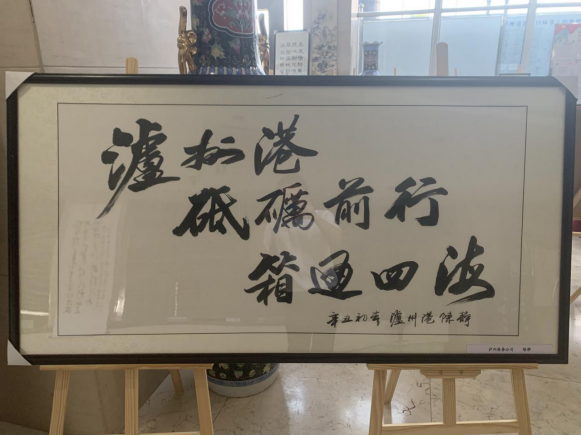 泸州港
砥礪前行
箱通四海
辛丑初 泸州港